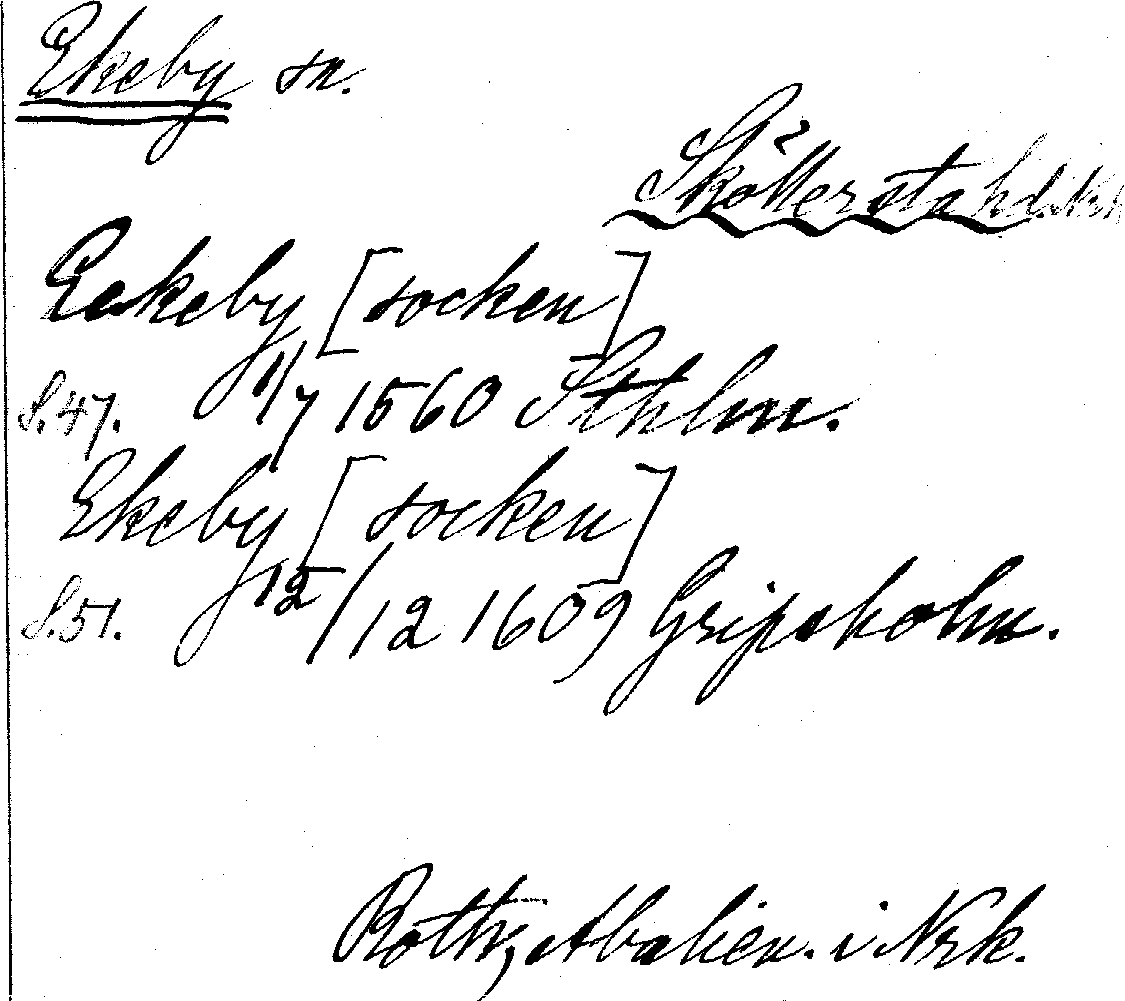 Ekeby sn.
Sköllersta hd. Nrk
Eekeby [socken]
S.47. 1/7 1560 Sthlm.
Ekeby [socken]
S.51. 12/12 1609 Gripsholm.
Roth, i Nrk.